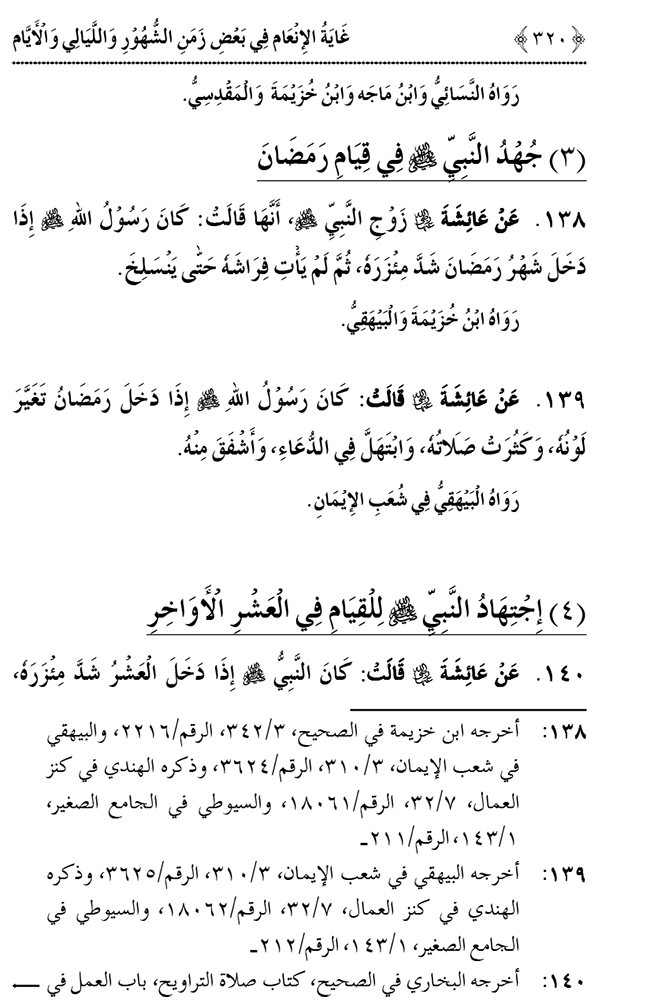 ﴿٣٢٠﴾ غَايَةُ الإِنْعَام فِي بَعْضِ زَمَنِ الشُّهُوْرِ وَاللَّيَالِي وَالْأَيَّام
رَوَاهُ النَّسَائِيُّ وَابْنُ مَاجَه وَابْنُ خُزَيْمَةَ وَالْمَقْدِسِيُّ.
(٣) جُهْدُ النَّبِيِّ ﷺ فِي قِيَامِ رَمَضَانَ
١٣٨. عَنْ عَائِشَةَ ؓ زَوْجِ النَّبِيِّ ﷺ، أَنَّهَا قَالَتْ: كَانَ رَسُوْلُ اللهِ ﷺ إِذَا
دَخَلَ شَهْرُ رَمَضَانَ شَدَّ مِئْزَرَهُ، ثُمَّ لَمْ يَأْتِ فِرَاشَهُ حَتّٰى يَنْسَلِخَ.
رَوَاهُ ابْنُ خُزَيْمَةَ وَالْبَيْهَقِيُّ.
١٣٩. عَنْ عَائِشَةَ ؓ قَالَتْ: كَانَ رَسُوْلُ اللهِ ﷺ إِذَا دَخَلَ رَمَضَانُ تَغَيَّرَ
لَوْنُهُ، وَكَثُرَتْ صَلَاتُهُ، وَابْتَهَلَّ فِي الدُّعَاءِ، وَأَشْفَقَ مِنْهُ.
رَوَاهُ الْبَيْهَقِيُّ فِي شُعَبِ الإِيْمَانِ.
(٤) إِجْتِهَادُ النَّبِيِّ ﷺ لِلْقِيَامِ فِي الْعَشْرِ الْأَوَاخِرِ
١٤٠. عَنْ عَائِشَةَ ؓ قَالَتْ: كَانَ النَّبِيُّ ﷺ إِذَا دَخَلَ الْعَشْرُ شَدَّ مِئْزَرَهُ،
١٣٨: أخرجه ابن خزيمة في الصحيح، ٣/٣٤٢، الرقم/٢٢١٦، والبيهقي
في شعب الإيمان، ٣/٣١٠، الرقم/٣٦٢٤، وذكره الهندي في كنز
العمال، ٧/٣٢، الرقم/١٨٠٦١، والسيوطي في الجامع الصغير،
١/١٤٣، الرقم/٢١١ـ
١٣٩: أخرجه البيهقي في شعب الإيمان، ٣/٣١٠، الرقم/٣٦٢٥، وذكره
الهندي في كنز العمال، ٧/٣٢، الرقم/١٨٠٦٢، والسيوطي في
الجامع الصغير، ١/١٤٣، الرقم/٢١٢ـ
١٤٠: أخرجه البخاري في الصحيح، كتاب صلاة التراويح، باب العمل في ـــ